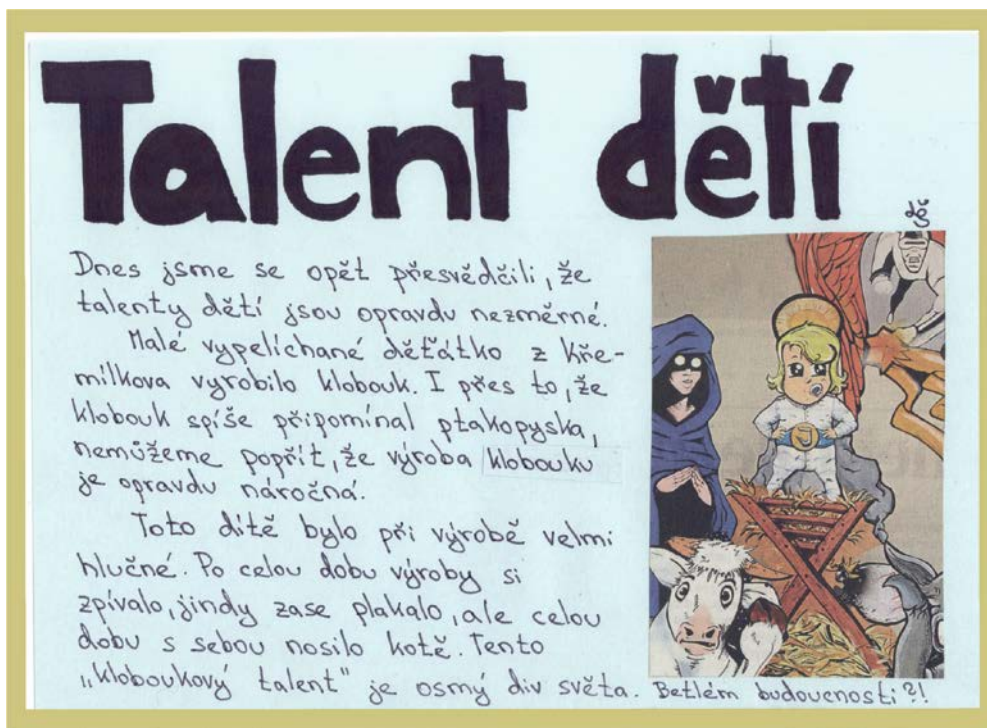 Talent dětí
dš
Dnes jsme se opět přesvědčili, že
talenty dětí jsou opravdu nezměrné.
Malé vypelichané děťátko z Kře-
mílkova vyrobilo klobouk. I přes to, že
klobouk spíše připomínal ptakopyska,
nemůžeme popřít, že výroba klobouku
je opravdu náročná.
Toto dítě bylo při výrobě velmi
hlučné. Po celou dobu výroby si
zpívalo, jindy zase plakalo, ale celou
dobu s sebou nosilo kotě. Tento
"kloboukový talent" je osmý div světa.
Betlém budoucnosti?!
J